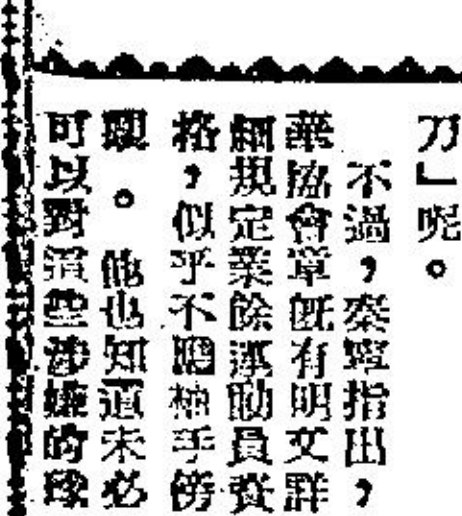 刀」呢。
不過,秦寧指出,
華協會章既有明文詳
細規定業餘運動員資
格,似乎不應袖手傍
觀。他也知道未必
可以對這些涉嫌的球